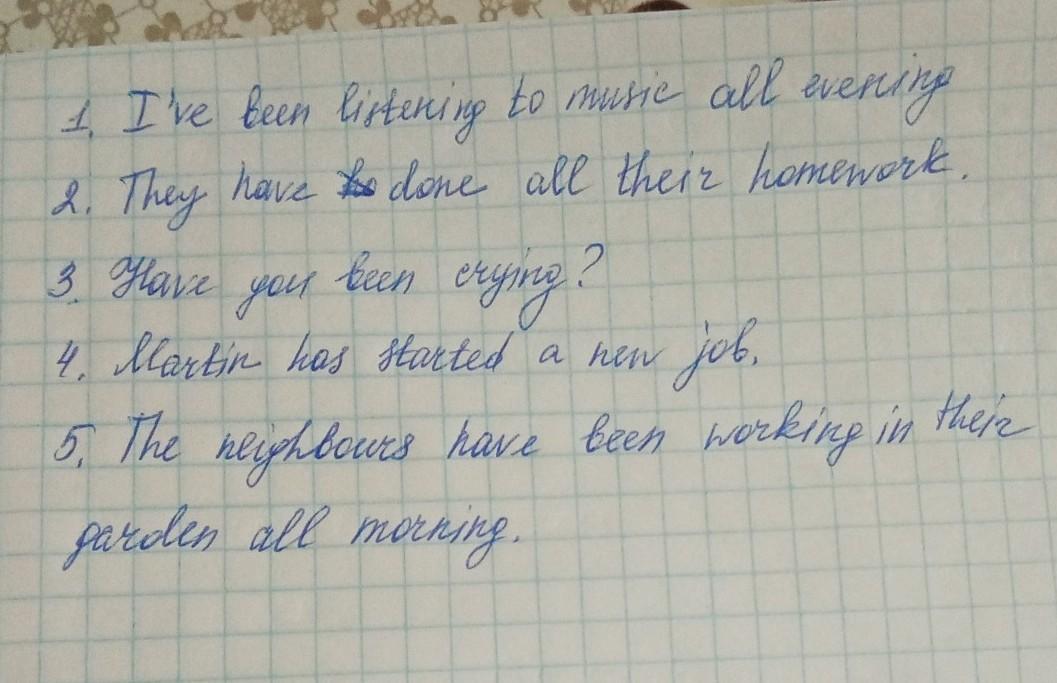 1. I've been listening to music all evening
2. They have done all their homework.
3. Have you been crying?
4. Martin has started a new job.
5. The neighbours have been working in their
garden all morning.